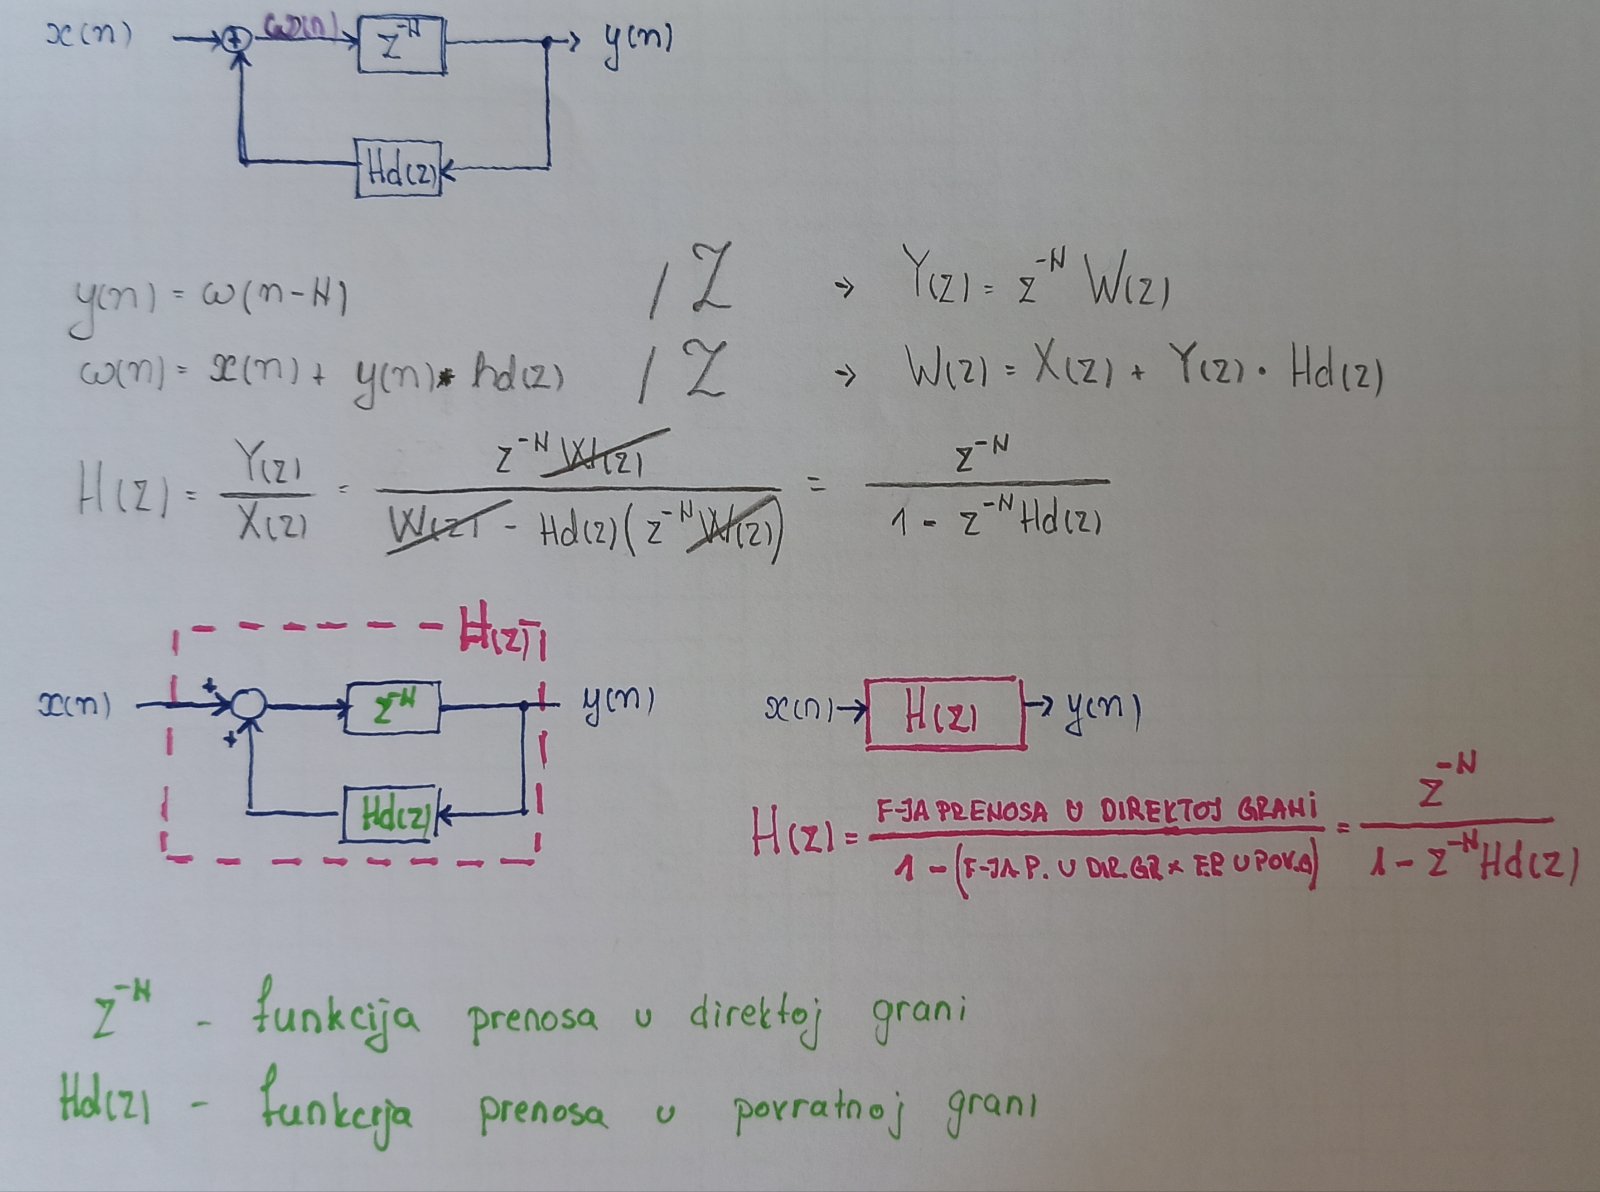 x(n) + ω(n) z^-N y(n)
Hd(z)
y(n) = ω(n-N) / Z → Y(z) = z^-N W(z)
ω(n) = x(n) + y(n) * hd(z) / Z → W(z) = X(z) + Y(z) · Hd(z)
H(z) = Y(z)/X(z) = z^-N W(z) / W(z) - Hd(z)(z^-N W(z)) = z^-N / 1 - z^-N Hd(z)
H(z)
x(n) + + z^-N y(n)
Hd(z)
x(n) → H(z) → y(n)
H(z) = F-JA PRENOSA U DIREKTOJ GRANI / 1 - (F-JA P. U DIR. GR × F.P U POV.G) = z^-N / 1 - z^-N Hd(z)
z^-N - funkcija prenosa u direktoj grani
Hd(z) - funkcija prenosa u povratnoj grani